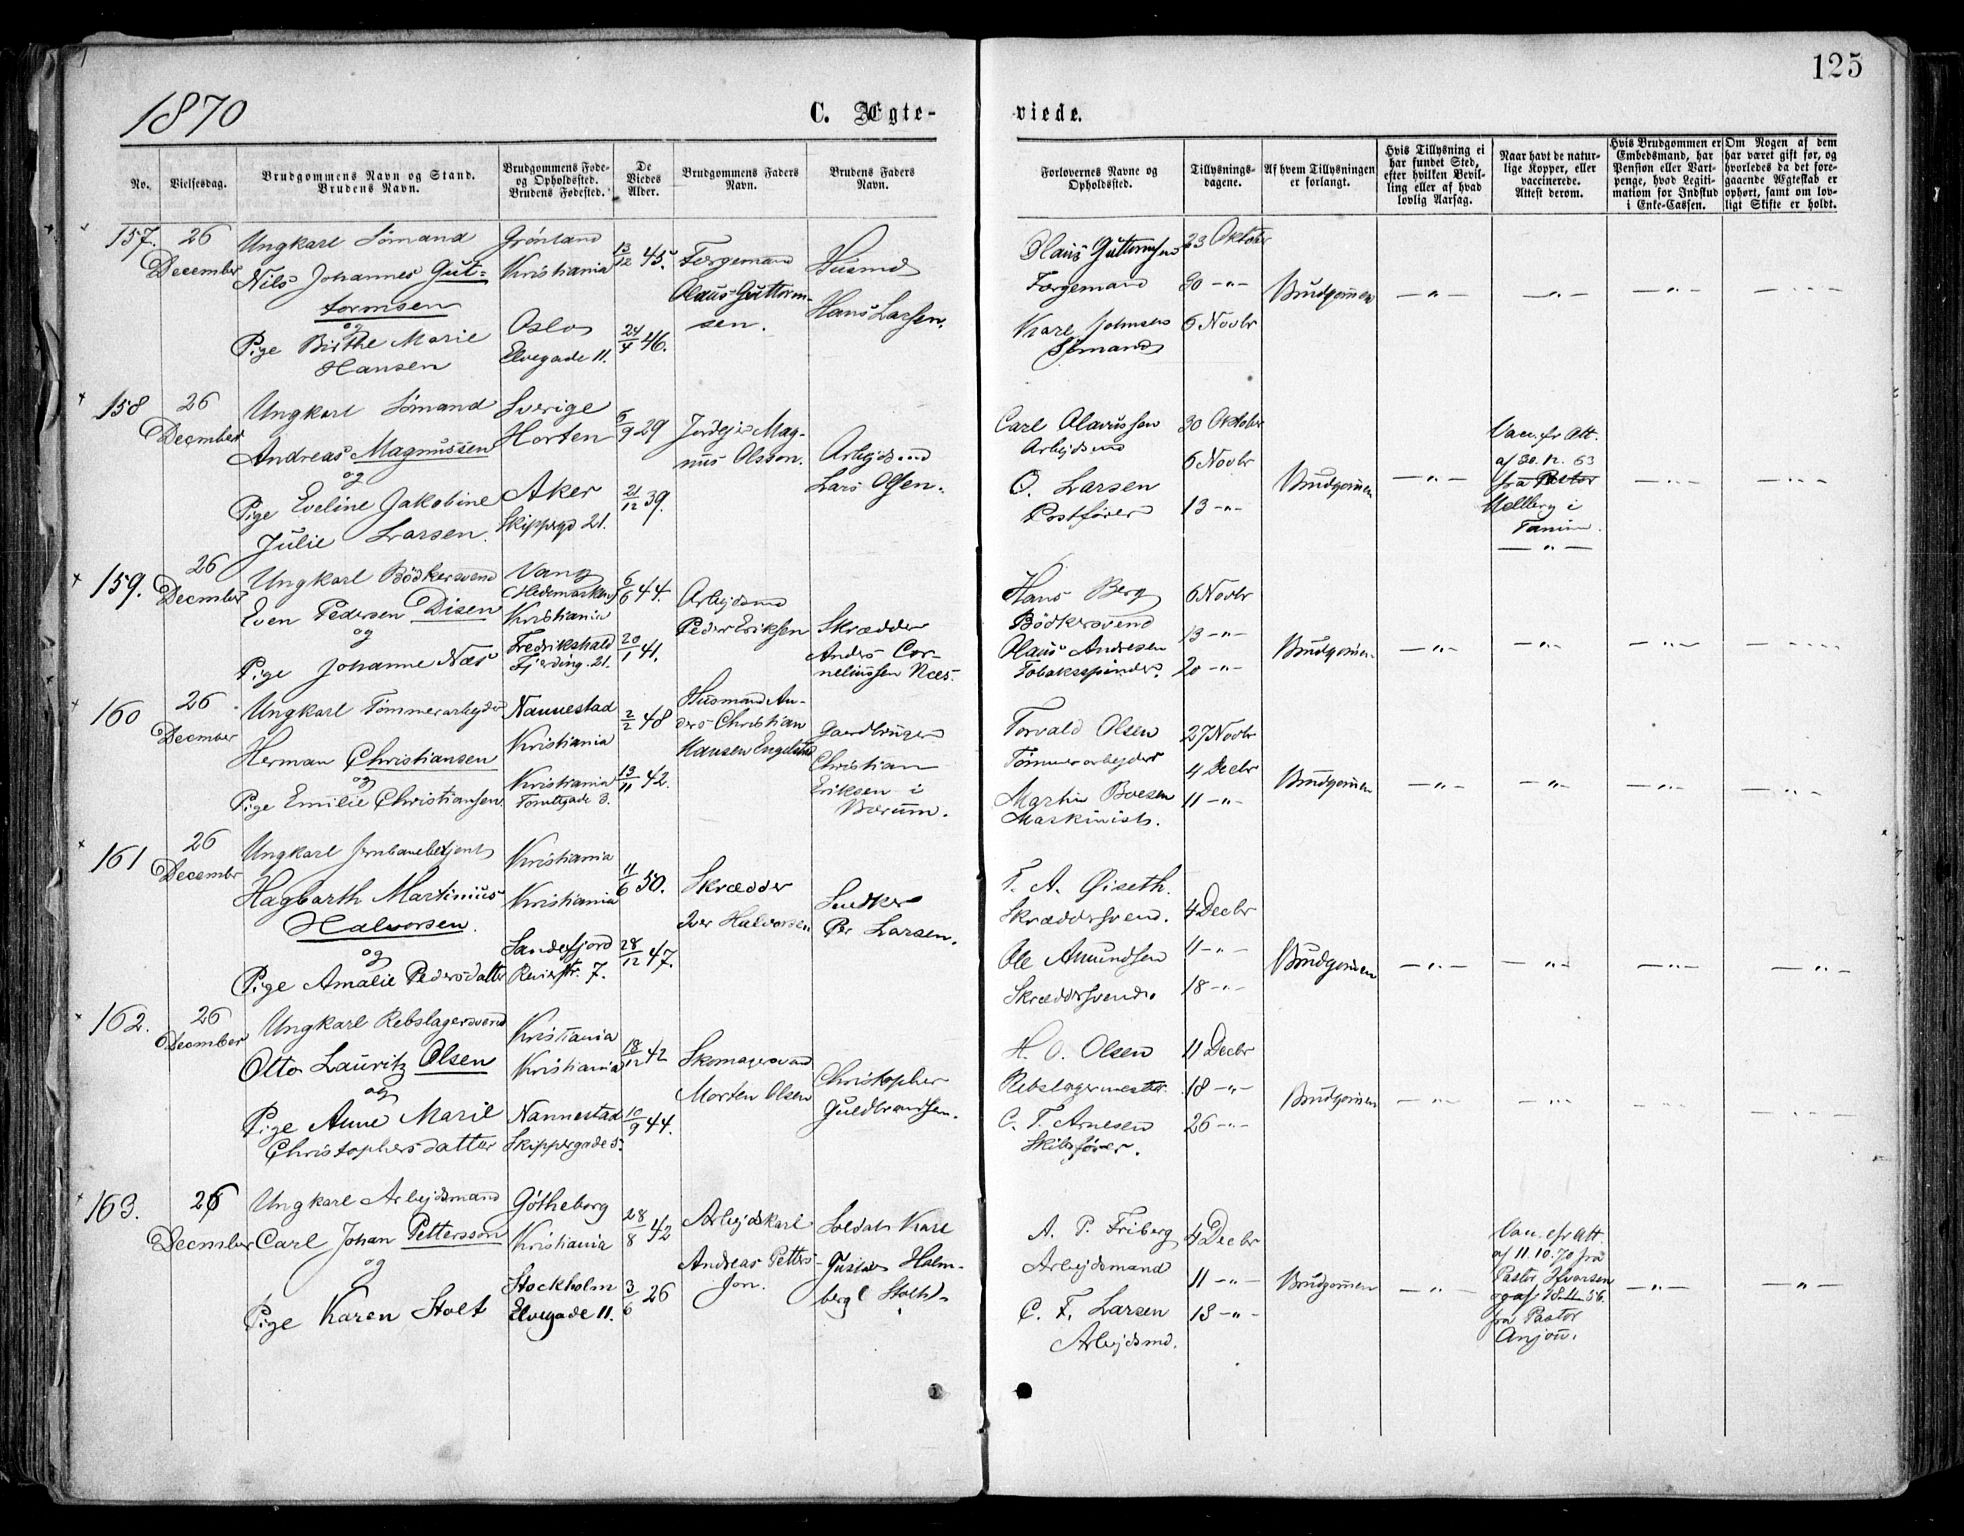 125
1870
C. Ægte-
viede.
No.
Vielsesdag.
Brudgommens Navn og Stand.
Brudens Navn.
Brudgommens Føde-
og Opholdssted.
Brudens Fødested.
De
Viedes
Alder.
Brudgommens Faders
Navn.
Brudens Faders
Navn.
Forlovernes Navne og
Opholdssted.
Tillysnings-
dagene.
Af hvem Tillysningen
er forlangt.
Hvis Tillysning ei
har fundet Sted,
efter hvilken Bevil-
ling eller af hvad
lovlig Aarsag.
Naar havt de natur-
lige Kopper, eller
vaccinerede.
Attest derom.
Hvis Brudgommen er
Embedsmand, har
Pension eller Vart-
penge, hvad Legiti-
mation for Indskud
i Enke-Cassen.
Om Nogen af dem
har været gift før, og
hvorledes da det fore-
gaaende Ægteskab er
ophørt, samt om lov-
ligt Skifte er holdt.
157.
26
December
Ungkarl Sømand
Nils Johannes Gut-
tormsen
og
Pige Birthe Marie
Hansen
Grønland
Kristiania
Oslo
Elvegade 11.
13/12 45.
24/4 46.
Færgemand
Olaus Guttorm-
sen.
Husmd
Hans Larsen.
Olaus Guttormsen
Færgemand
Karl Johnsen
Sømand
23 Oktober
30 -"-
6 Novbr
Brudgommen
-"-
-"-
-"-
158
26
December
Ungkarl Sømand
Andreas Magnussen
og
Pige Eveline Jakobine
Julie Larsen.
Sverige
Horten
Aker
Skippergd 21.
6/9 29
21/12 39.
Jordejer Mag-
nus Olsson.
Arbejdsmd
Lars Olsen.
Carl Olavussen
Arbejdsmd
O. Larsen
Postfører
30 Oktober
6 Novbr
13 -"-
Brudgommen
-"-
Vacc. efr Att.
af 30.12.63
fra Pastor
Mellberg i
Tanum.
-"-
-"-
159.
26
December
Ungkarl Bødkersvend
Even Pedersen Disen
og
Pige Johanne Næs
Vang
(Hedemarken)
Kristiania
Fredrikshald
Fjerding. 21.
6/6 44.
20/1 41.
Arbejdsmd
Peder Eriksen
Skrædder
Anders Cor-
neliussen Næs.
Hans Berg
Bødkersvend
Olaus Andresen
Tobaksspinder.
6 Novbr
13 -"-
20 -"-
Brudgommen
-"-
-"-
-"-
160
26
December
Ungkarl Tømmerarbejder
Herman Christiansen
og
Pige Emilie Christiansen
Nannestad
Kristiania
Kristiania
Tomtegade 3.
2/2 48
13/11 42.
Husmand An-
ders Christian
Hansen Engelstad
Gaardbruger
Christian
Eriksen i
Bærum.
Torvald Olsen
Tømmerarbejder
Martin Boesen
Maskinist.
27 Novbr
4 Decbr
11 -"-
Brudgommen
-"-
-"-
-"-
161
26
December
Ungkarl Jernbanebetjent
Hagbarth Martinius
Halvorsen.
og
Pige Amalie Pedersdatter
Kristiania
Kristiania
Sandefjord
Revierstr. 7.
11/6 50.
28/12 47.
Skrædder
Iver Halvorsen
Snedker
Per Larsen.
T. A. Øiseth.
Skræddersvend.
Ole Amundsen
Skræddersvend.
4 Decbr
11 -"-
18 -"-
Brudgommen
-"-
-"-
-"-
162.
26
December
Ungkarl Rebslagersvend
Otto Lauritz Olsen
og
Pige Anne Marie
Christophersdatter
Kristiania
Kristiania
Nannestad
Skippergade 5.
18/12 42
10/9 44.
Skomagersvend
Morten Olsen
Christopher
Guldbrandsen.
H. O. Olsen
Rebslagermester.
C. T. Arnesen
Skibsfører.
11 Decbr
18 -"-
26 -"-
Brudgommen
-"-
-"-
-"-
163.
26
December
Ungkarl Arbejdsmand
Carl Johan Pettersson
og
Pige Karen Stolt
Götheborg
Kristiania
Stockholm
Elvegade 11.
28/8 42
3/6 26
Arbejdskarl
Andreas Petters-
son.
Soldat Karl
Gustav Holm-
berg (Stolt).
A. P. Friberg
Arbejdsmand
C. F. Larsen
Arbejdsmd.
4 Decbr
11 -"-
18 -"-
Brudgommen
-"-
Vac. efr Att.
af 11.10.70 fra
Pastor Ifvarsen
og af 18.4.56.
fra Pastor
Anjou.
-"-
"